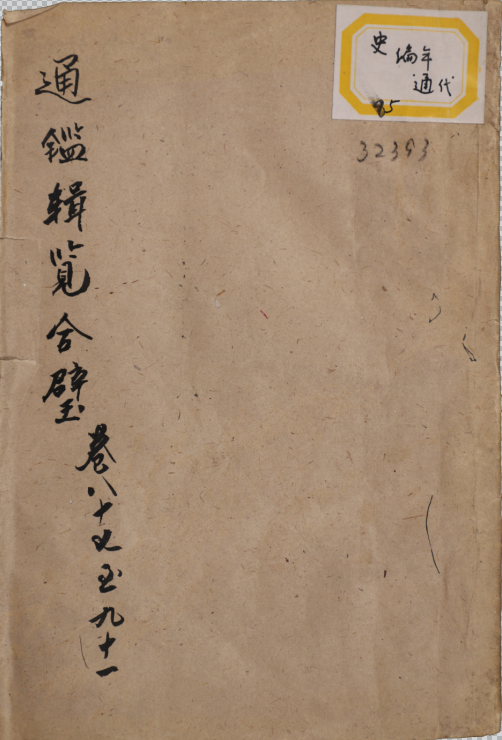 史
編年
通代
32393
通鑑輯览合璧
卷八十七至九十一